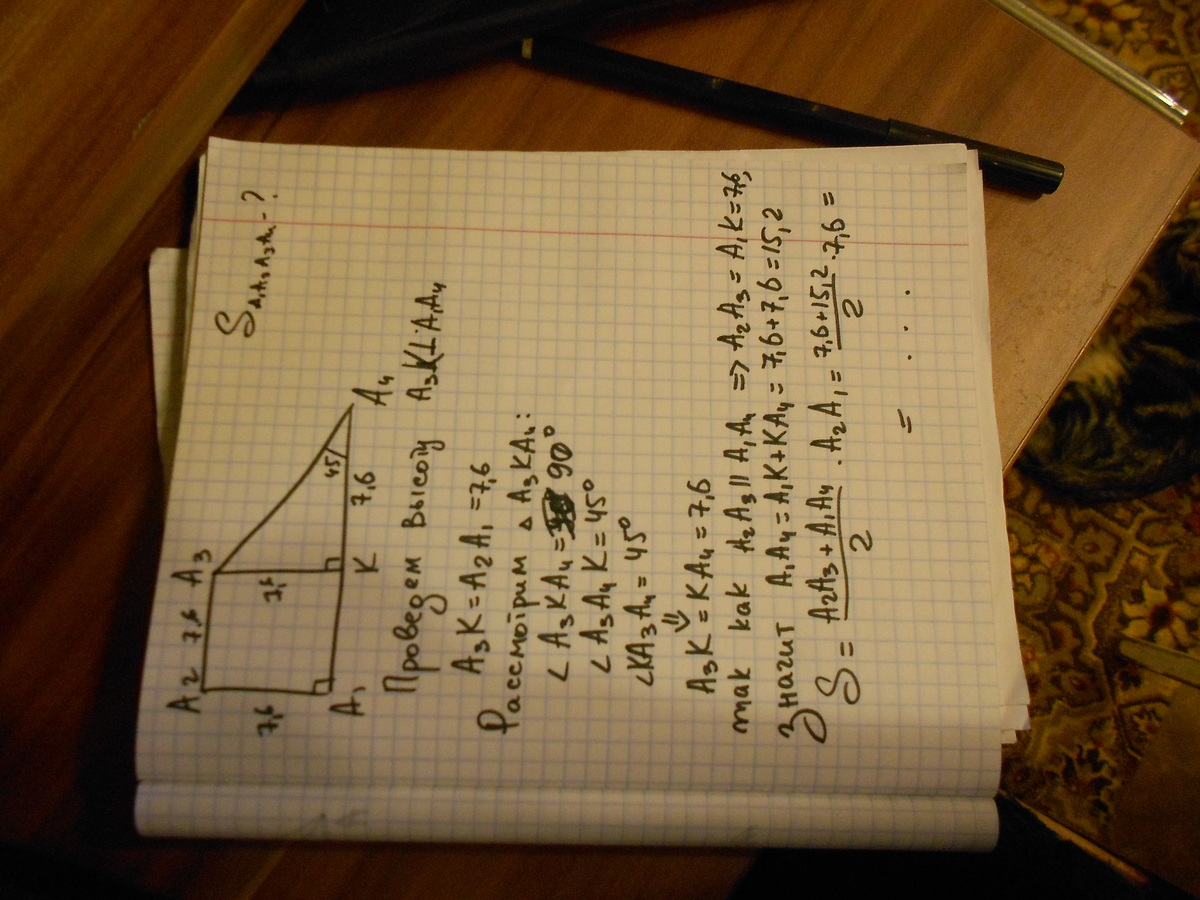 S A₁A₂A₃A₄ - ?
A₂ 7,6 A₃
7,6
7,6
45
A₁ K 7,6 A₄
Проведем высоту A₃K⊥A₁A₄
A₃K = A₂A₁ = 7,6
Рассмотрим △ A₃KA₄:
∠ A₃KA₄ = 90°
∠ A₃A₄K = 45°
∠KA₃A₄ = 45°
⇓
A₃K = KA₄ = 7,6
так как A₂A₃ || A₁A₄ => A₂A₃ = A₁K = 7,6,
Значит A₁A₄ = A₁K + KA₄ = 7,6 + 7,6 = 15,2
S = (A₂A₃ + A₁A₄)/2 · A₂A₁ = (7,6+15,2)/2 · 7,6 =
= . . .